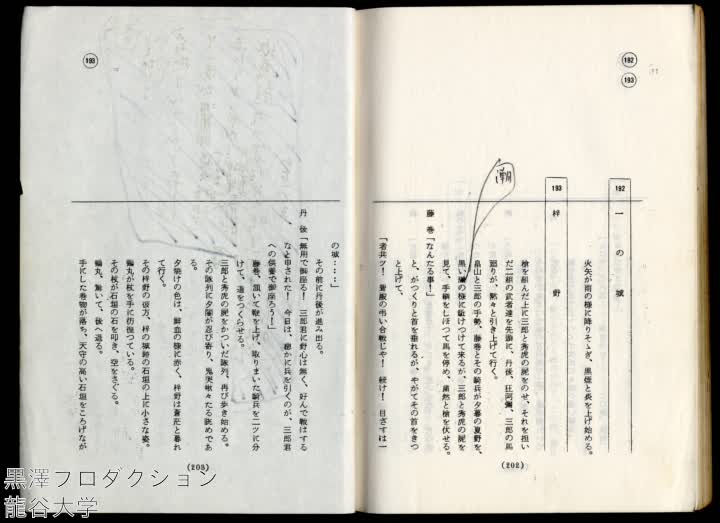 192
193
192 一の城
火矢が雨の様に降りそゝぎ、黒煙と炎を上げ始める。
193 梓野
槍を組んだ上に三郎と秀虎の屍をのせ、それを担い
だ二組の武者達を先頭に、丹後、狂阿彌、三郎の馬
廻りが、黙々と引き上げて行く。
畠山と三郎の手勢、藤巻とその騎兵が夕暮の夏野を、
黒い潮の様に駈けつけて来るが、三郎と秀虎の屍を
見て、手綱をしぼつて馬を停め、粛然と槍を伏せる。
潮
藤巻「なんたる事!」
と、がつくりと首を垂れるが、やがてその首をきつ
と上げて、
「者共ツ! 舅殿の弔い合戦じや! 続け! 目ざすは一
(202)
193
の城……」
その前に丹後が進み出る。
丹後「無用で御座る! 三郎君に野心は無く、好んで戦はする
なと申された! 今日は、穏かに兵を引くのが、三郎君
への供養で御座ろう!」
藤巻、頷いて鞭を上げ、取りまいた騎兵を二ツに分
けて、道をつくらせる。
三郎と秀虎の屍をかついだ隊列、再び歩き始める。
その隊列に夕闇が忍び寄り、鬼哭啾々たる眺めであ
る。
夕焼けの色は、鮮血の様に赤く、梓野は蒼茫と暮れ
て行く。
その梓野の彼方、梓の城跡の石垣の上に小さな姿。
鶴丸が杖を手に彷徨つている。
その杖が石垣の石を叩き、空をさぐる。
鶴丸、驚いて、後へ退る。
手にした巻物が落ち、天守の高い石垣をころげなが
(203)
黒澤プロダクション
龍谷大学